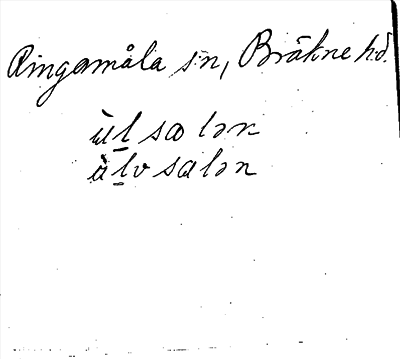 Ringamåla sn, Bräkne hd.
ùl̲salən
àl̲vsalən